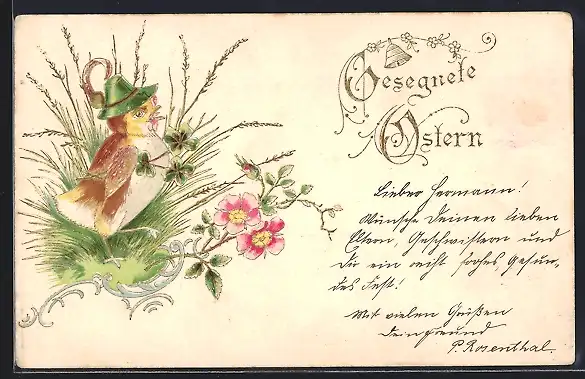 Gesegnete
Ostern
Lieber Hermann!
Wünsche Deinen lieben
Eltern, Geschwistern und
Dir ein recht frohes, gesun-
des Fest!
Mit vielen Grüßen
Dein Freund
P. Rosenthal.